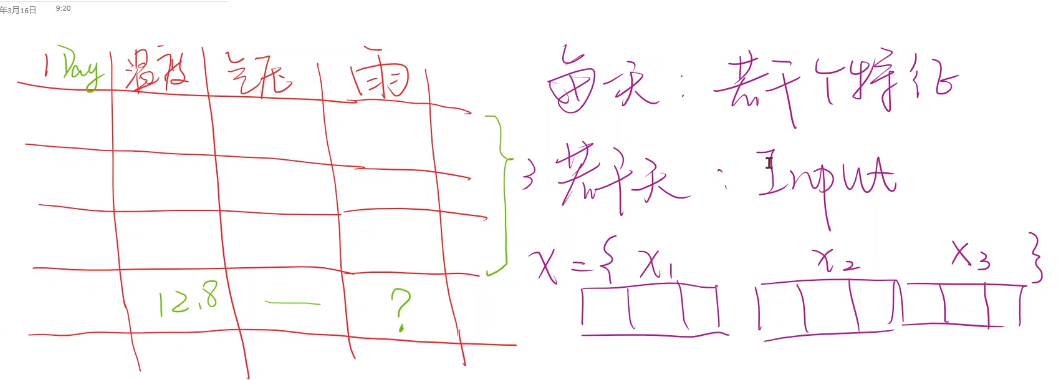 年3月16日 9:20
1 Day 温度 气压 雨
每天：若干个特征
3 若干天：Input
12.8 — ?
X = { X₁ X₂ X₃ }